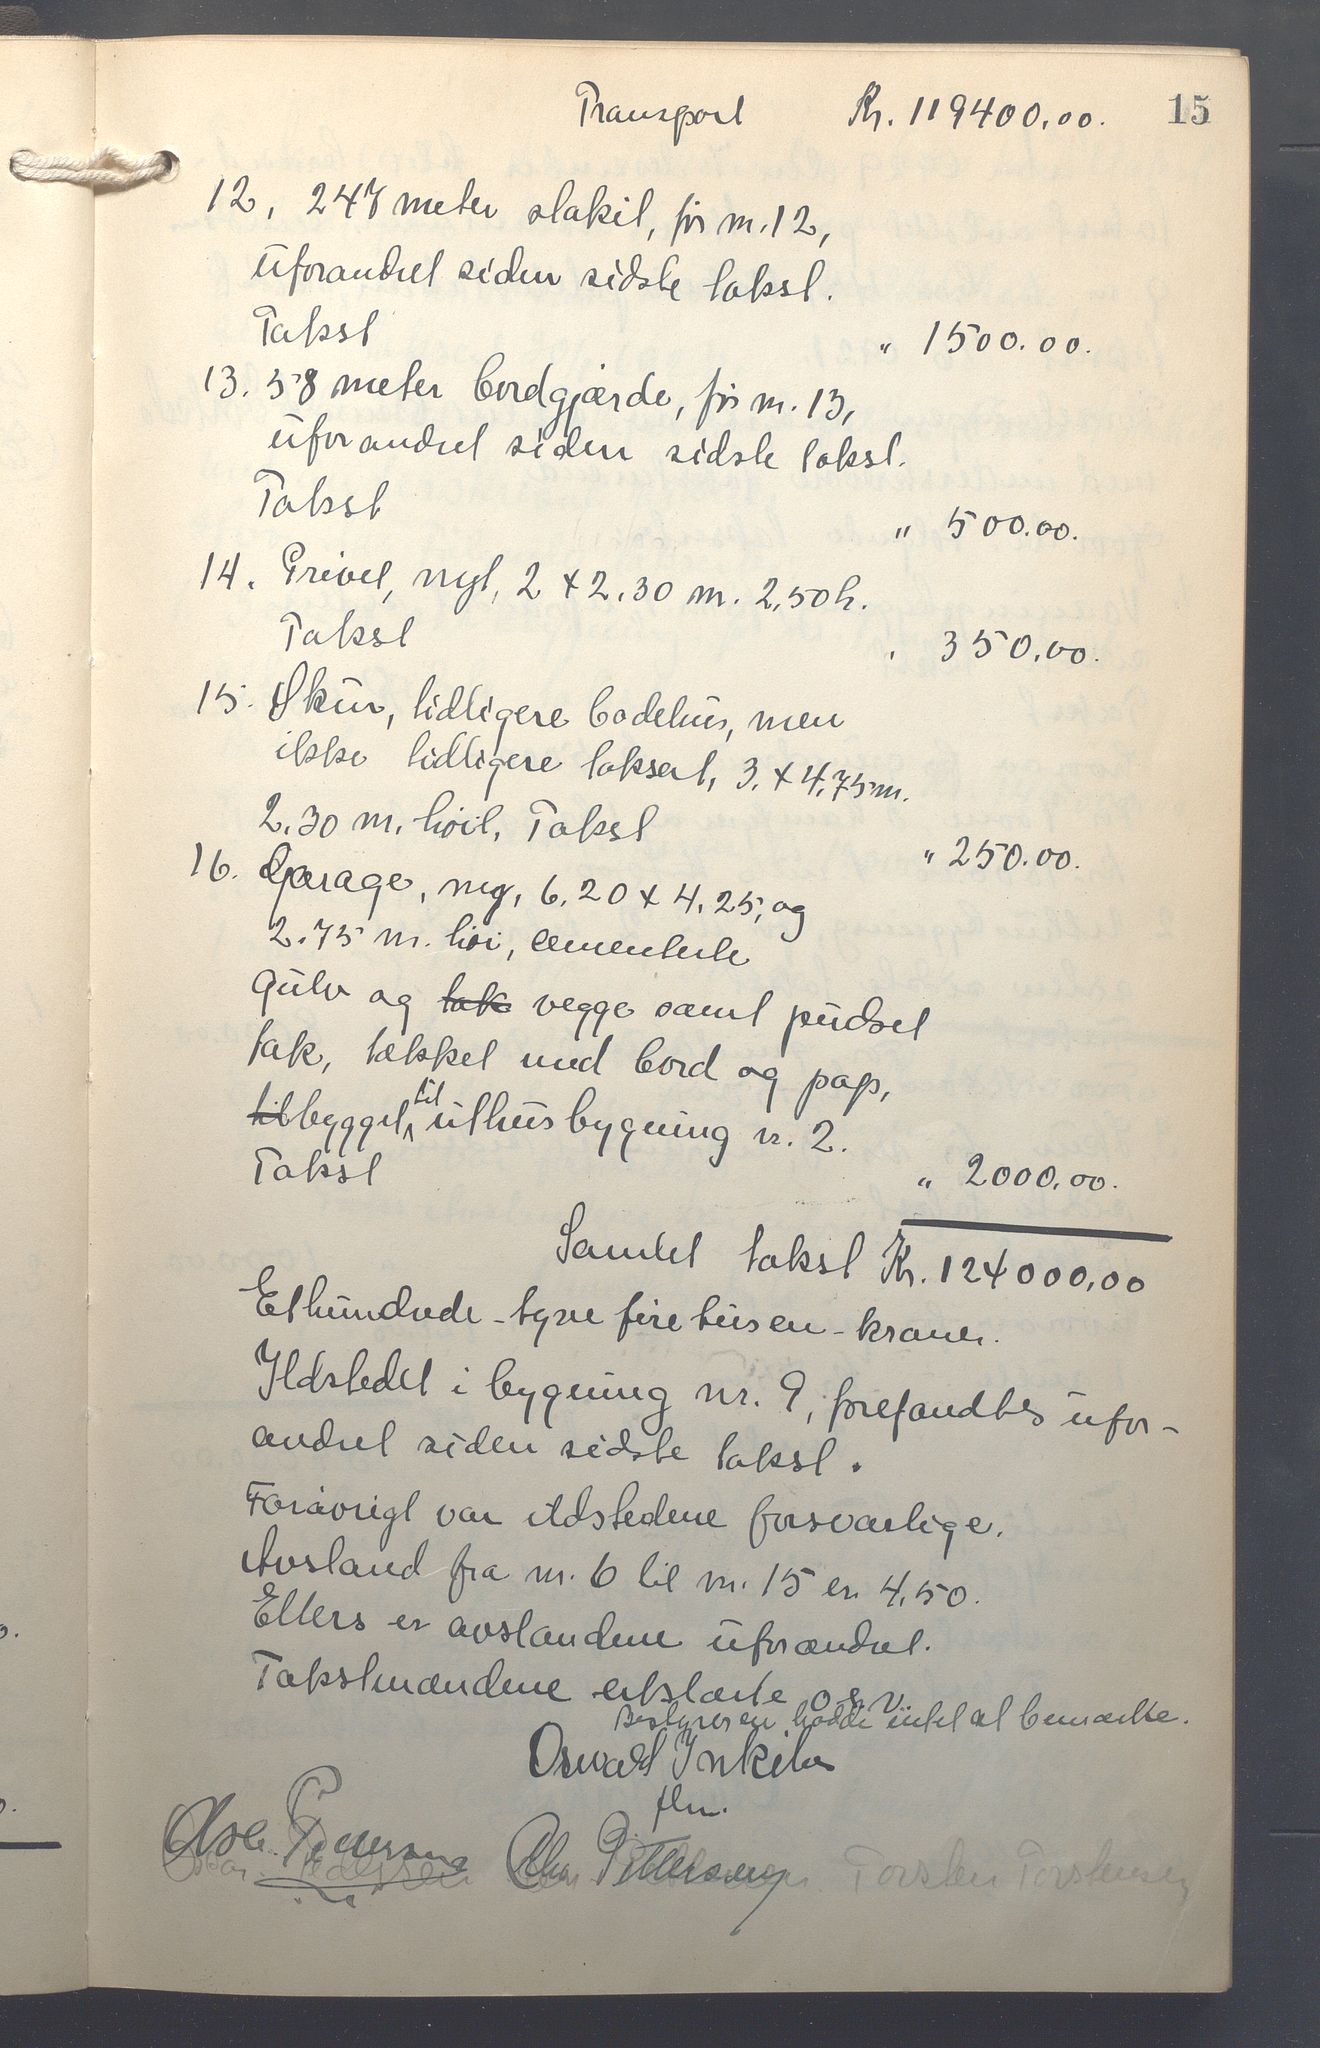 Transport Kr. 119400.00. 15
12, 247 meter stakit, før nr. 12,
uforandret siden sidste takst.
Takst " 1500.00.
13. 58 meter bordgjærde, før nr. 13,
uforandret siden sidste takst.
Takst " 500.00.
14. Privet, nyt, 2 x 2.30 m. 2,50 h.
Takst " 350,00.
15. Skur, tidligere badehus, men
ikke tidligere taksert, 3. x 4,75 m.
2.30 m. høit, Takst " 250.00.
16. Garage, ny, 6.20 x 4.25, og
2.75 m. høi, cementerte
gulv og tak vegge samt pudset
tak, tækket med bord og pap,
tilbygget til uthusbygning nr. 2.
Takst " 2000.00.
Samlet takst Kr. 124000,00
Ethundrede-tyve fire tusen-kroner.
Ildstedet i bygning nr. 9, forefandtes ufor-
andret siden sidste takst.
Forøvrigt var ildstedene forsvarlige.
Avstand fra nr. 6 til nr. 15 er 4,50.
Ellers er avstandene uforandret.
Takstmændene erklærte o.s.v.
Bestyreren hadde intet at bemærke.
Oswald
fhv.
Pedersen Chr. Pettersen Torsten Torstensen